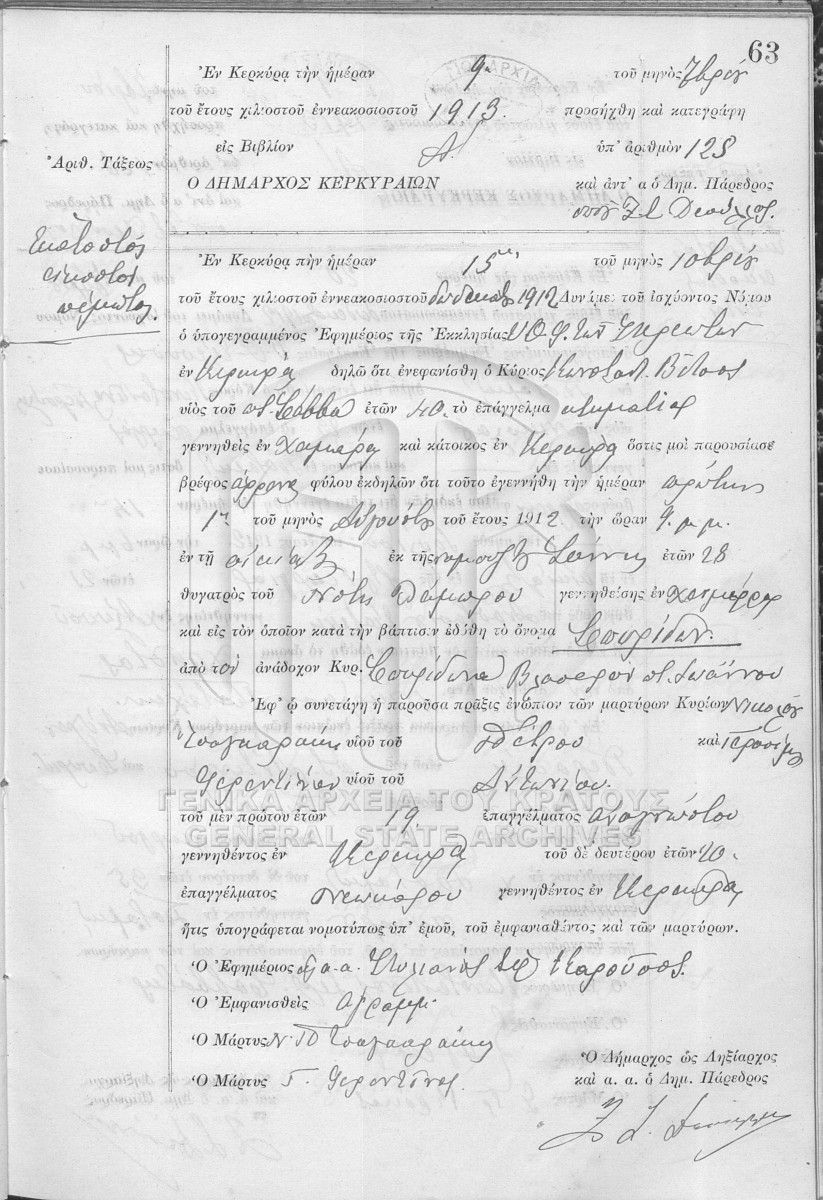 63
Ἐν Κερκύρᾳ τὴν ἡμέραν 9ῃ τοῦ μηνὸς 7βρίου
τοῦ ἔτους χιλιοστοῦ ἐννεακοσιοστοῦ 1913. προσήχθη καὶ κατεγράφη
εἰς Βιβλίον Α. ὑπ' ἀριθμὸν 125
Ἀριθ. Τάξεως
Ὁ ΔΗΜΑΡΧΟΣ ΚΕΡΚΥΡΑΙΩΝ καὶ ἀντ' α ὁ Δημ. Πάρεδρος
Ἑκατοστός
εἰκοστός
πέμπτος
Ἐν Κερκύρᾳ τὴν ἡμέραν 15ην τοῦ μηνὸς 10βρίου
τοῦ ἔτους χιλιοστοῦ ἐννεακοσιοστοῦ δωδεκάτου 1912 Δυνάμει τοῦ ἰσχύοντος Νόμου
ὁ ὑπογεγραμμένος Ἐφημέριος τῆς Ἐκκλησίας
ἐν Κερκύρᾳ δηλῶ ὅτι ἐνεφανίσθη ὁ Κύριος Κωνσταντ. Βίτσος
υἱὸς τοῦ π. Σάββα ἐτῶν 40 τὸ ἐπάγγελμα κτηματίας
γεννηθεὶς ἐν Χειμάρρᾳ καὶ κάτοικος ἐν Κερκύρᾳ ὅστις μοὶ παρουσίασε
βρέφος ἄρρενος φύλου ἐκδηλῶν ὅτι τοῦτο ἐγεννήθη τὴν ἡμέραν πρώτην
1ην τοῦ μηνὸς Αὐγούστου τοῦ ἔτους 1912 τὴν ὥραν 9 μ.μ.
ἐν τῇ οἰκίᾳ ἐκ τῆς συζύγου ἐτῶν 28
θυγατρὸς τοῦ γεννηθείσης ἐν Χειμάρρᾳ
καὶ εἰς τὸν ὁποῖον κατὰ τὴν βάπτισιν ἐδόθη τὸ ὄνομα Σπυρίδων.
ἀπὸ τὸν ἀνάδοχον Κυρ. Σπυρίδωνα π. Ἰωάννου
Ἐφ' ᾧ συνετάγη ἡ παροῦσα πρᾶξις ἐνώπιον τῶν μαρτύρων Κυρίων Νικολάου
Τσαγκαράκη υἱοῦ τοῦ Πέτρου καὶ Γερασίμου
Φερεντίνου υἱοῦ τοῦ Ἀντωνίου.
ΓΕΝΙΚΑ ΑΡΧΕΙΑ ΤΟΥ ΚΡΑΤΟΥΣ
τοῦ μὲν πρώτου ἐτῶν 19 ἐπαγγέλματος ἀναγνώστου
GENERAL STATE ARCHIVES
γεννηθέντος ἐν Κερκύρᾳ τοῦ δὲ δευτέρου ἐτῶν 20
ἐπαγγέλματος νεωκόρου γεννηθέντος ἐν Κερκύρᾳ
ἥτις ὑπογράφεται νομοτύπως ὑπ' ἐμοῦ, τοῦ ἐμφανισθέντος καὶ τῶν μαρτύρων.
Ὁ Ἐφημέριος Στυλιανὸς Ἱερ. Καροῦσος.
Ὁ Ἐμφανισθεὶς ἀγράμμ.
Ὁ Μάρτυς Ν. Π Τσαγκαράκης
Ὁ Μάρτυς Γ. Φερεντῖνος.
Ὁ Δήμαρχος ὡς Ληξίαρχος
καὶ α. α. ὁ Δημ. Πάρεδρος